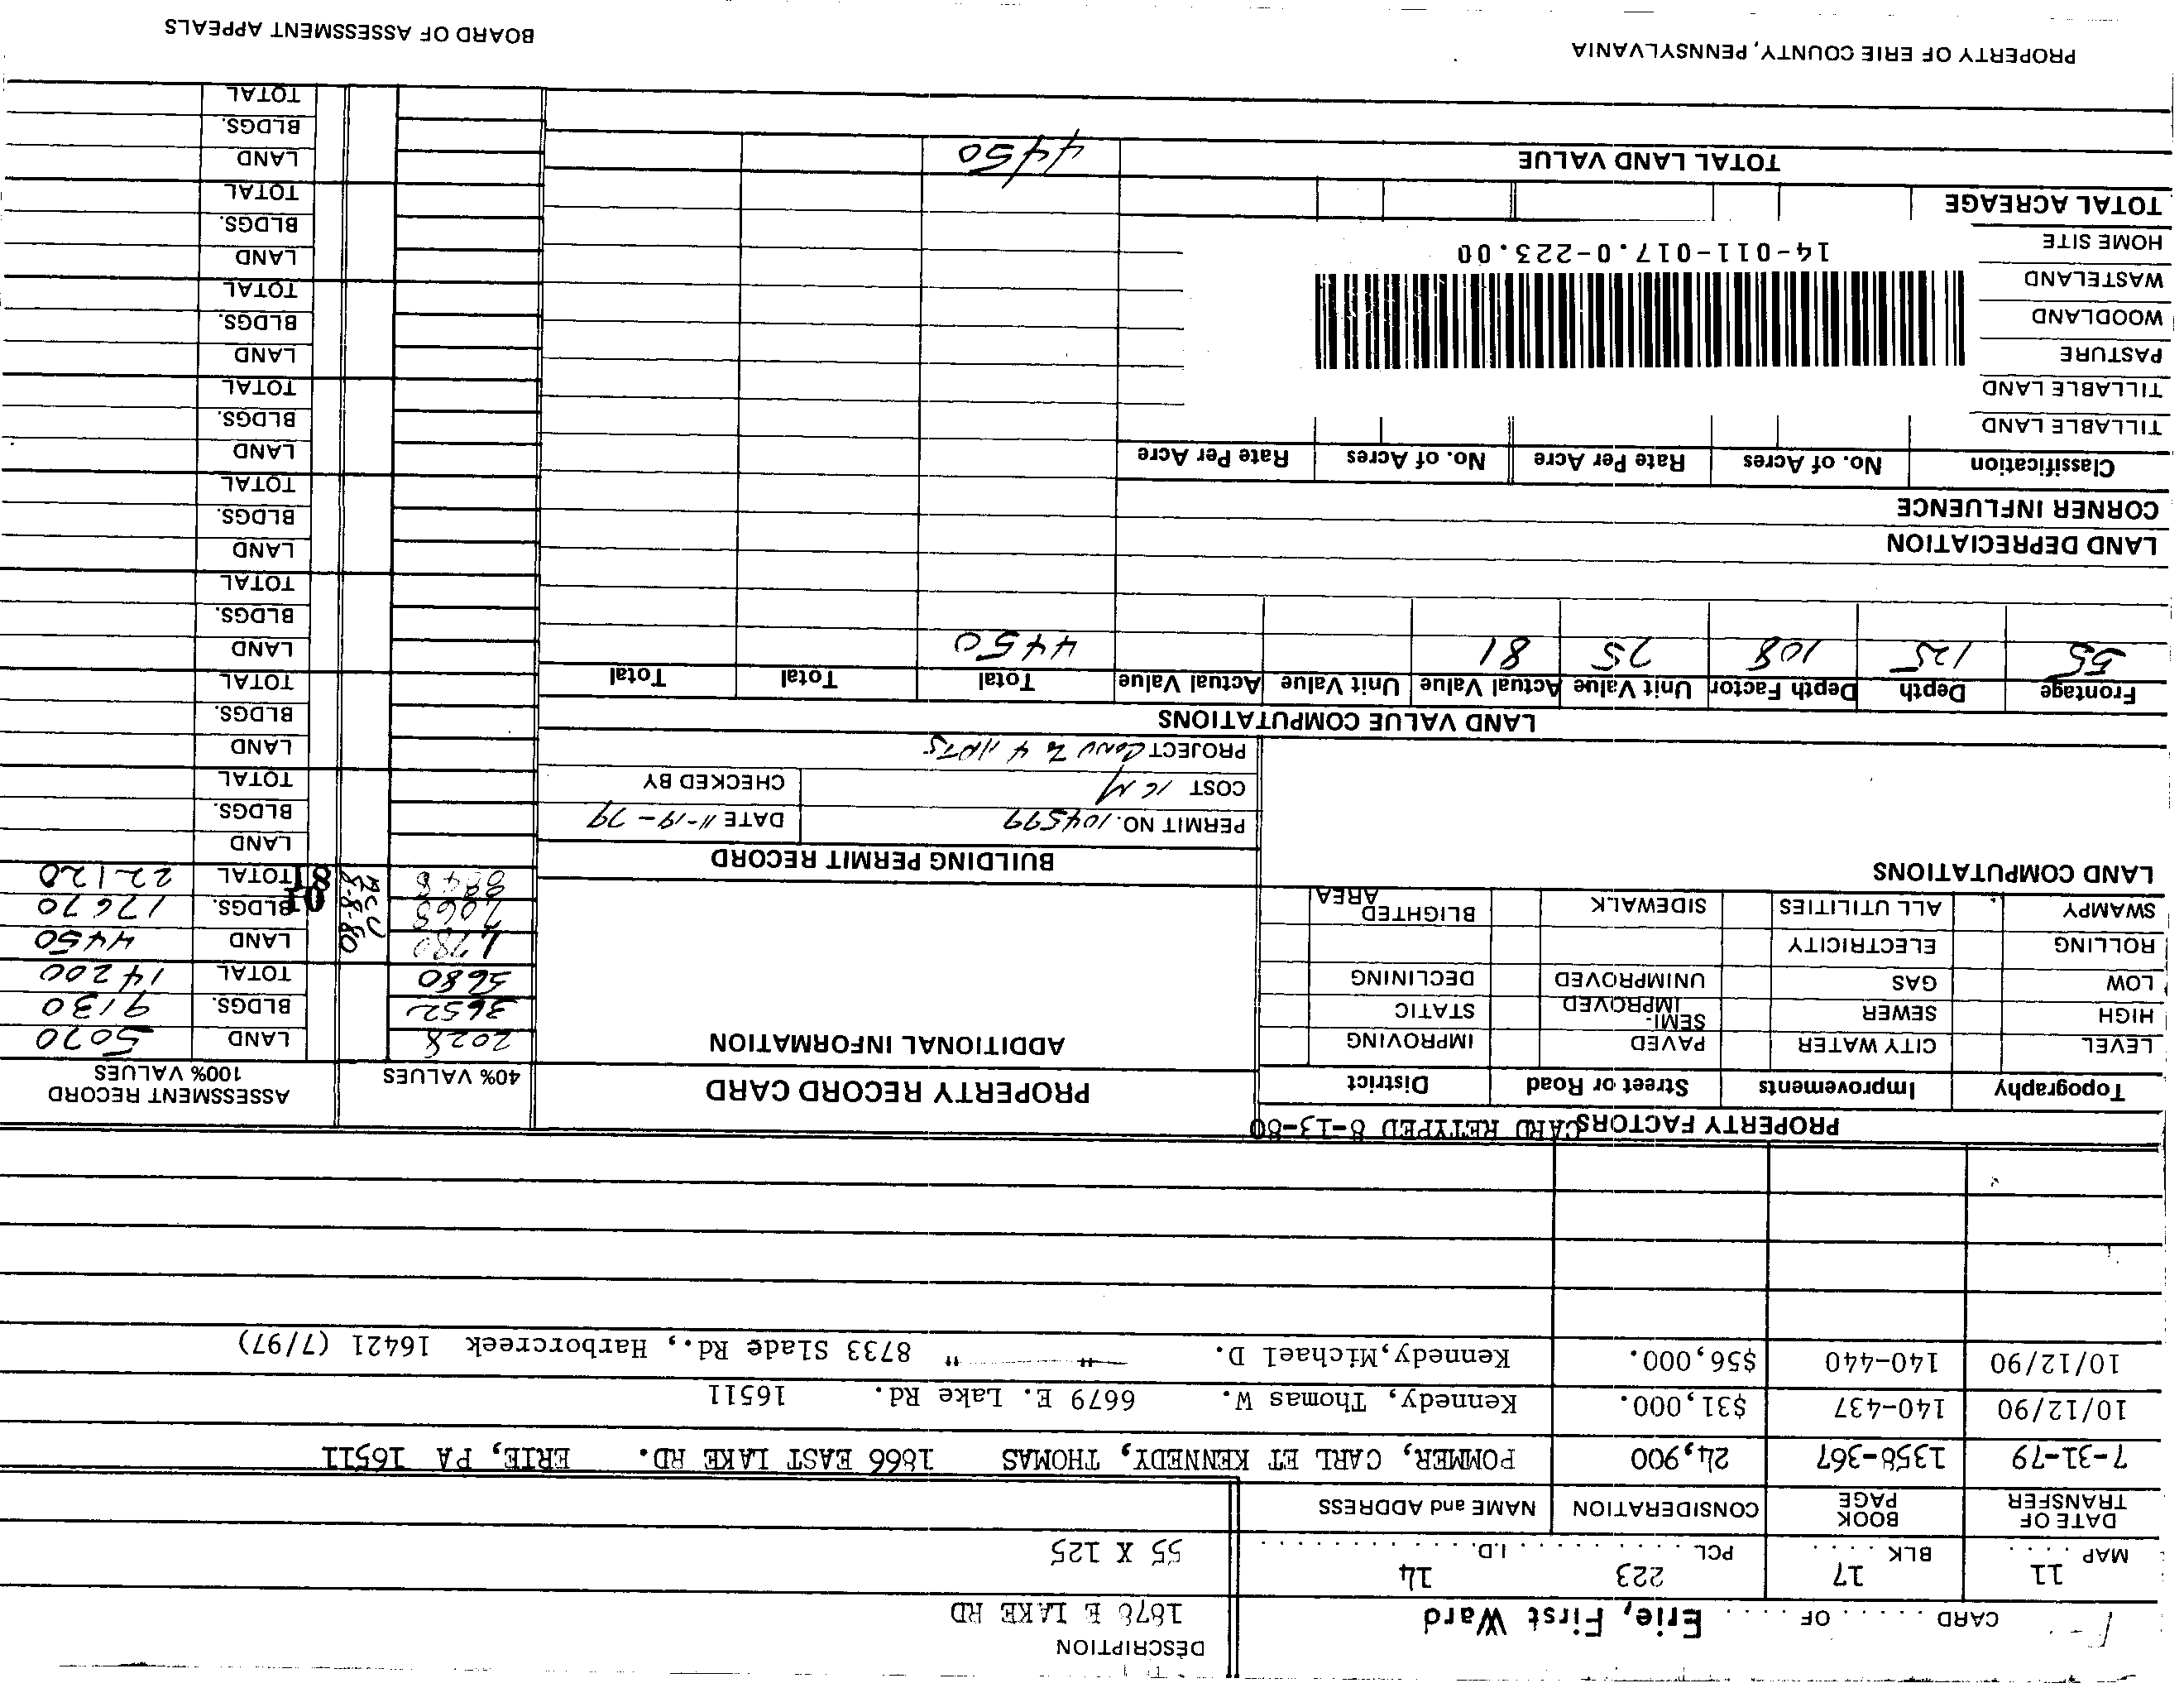 DESCRIPTION
CARD . . . . . OF . . . . . Erie, First Ward
1878 E LAKE RD
11 17 223 14
MAP . . . . BLK . . . . PCL . . . . . . . I.D. . . . . . . . . . .
55 X 125
DATE OF TRANSFER BOOK PAGE CONSIDERATION NAME and ADDRESS
7-31-79 1358-367 24,900 POMMER, CARL ET KENNEDY, THOMAS 1866 EAST LAKE RD. ERIE, PA 16511
10/12/90 140-437 $31,000. Kennedy, Thomas W. 6679 E. Lake Rd. 16511
10/12/90 140-440 $56,000. Kennedy,Michael D. " " 8733 Slade Rd., Harborcreek 16421 (7/97)
PROPERTY FACTORS CARD RETYPED 8-13-80
Topography Improvements Street or Road District
LEVEL CITY WATER PAVED IMPROVING
HIGH SEWER SEMI-IMPROVED STATIC
LOW GAS UNIMPROVED DECLINING
ROLLING ELECTRICITY
SWAMPY ALL UTILITIES SIDEWALK BLIGHTED AREA
LAND COMPUTATIONS
PROPERTY RECORD CARD
ADDITIONAL INFORMATION
BUILDING PERMIT RECORD
PERMIT NO. 104599 DATE 11-19-79
COST 16 M CHECKED BY
PROJECT CONV TO 4 APTS
40% VALUES ASSESSMENT RECORD 100% VALUES
2028 LAND 5070
3652 BLDGS. 9130
5680 TOTAL 14200
1,780 LAND 4450
7,068 BLDGS. 17670
8848 TOTAL 22120
8-8-80
10
18
LAND
BLDGS.
TOTAL
LAND
BLDGS.
TOTAL
LAND
BLDGS.
TOTAL
LAND
BLDGS.
TOTAL
LAND
BLDGS.
TOTAL
LAND
BLDGS.
TOTAL
LAND
BLDGS.
TOTAL
LAND
BLDGS.
TOTAL
LAND VALUE COMPUTATIONS
Frontage Depth Depth Factor Unit Value Actual Value Unit Value Actual Value Total Total Total
55 125 108 75 81 4450
LAND DEPRECIATION
CORNER INFLUENCE
Classification No. of Acres Rate Per Acre No. of Acres Rate Per Acre
TILLABLE LAND
TILLABLE LAND
PASTURE
WOODLAND
WASTELAND
HOME SITE
14-011-017.0-223.00
TOTAL ACREAGE
TOTAL LAND VALUE 4450
PROPERTY OF ERIE COUNTY, PENNSYLVANIA BOARD OF ASSESSMENT APPEALS